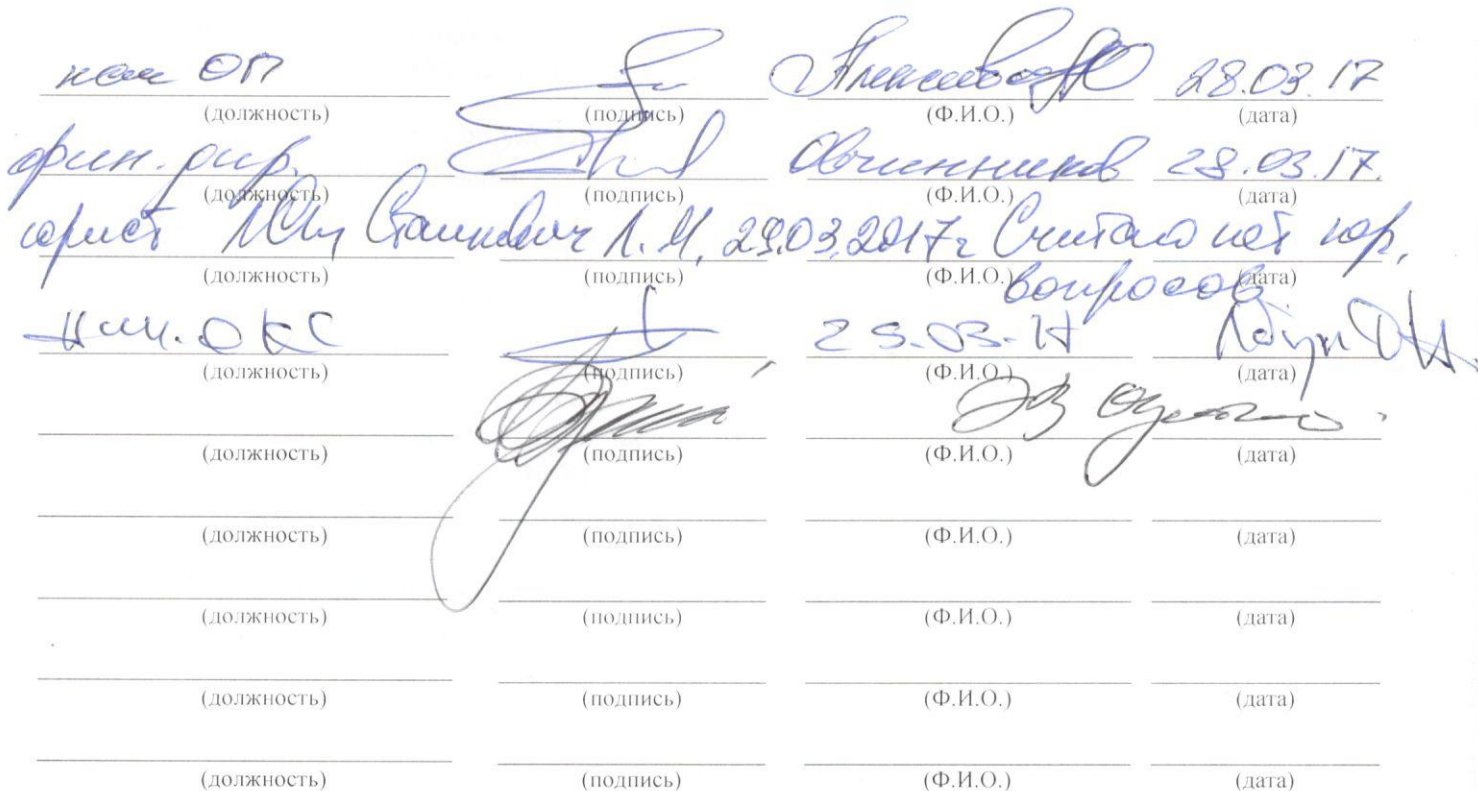 нач ОП 28.03.17
(должность) (подпись) (Ф.И.О.) (дата)
фин. дир. Овчинников 28.03.17.
(должность) (подпись) (Ф.И.О.) (дата)
юрист Станкевич Л.М, 29.03.2017г Считаю нет юр.
(должность) (подпись) (Ф.И.О.) (дата)
вопросов
Нач. ОКС 29.03.17
(должность) (подпись) (Ф.И.О.) (дата)
(должность) (подпись) (Ф.И.О.) (дата)
(должность) (подпись) (Ф.И.О.) (дата)
(должность) (подпись) (Ф.И.О.) (дата)
(должность) (подпись) (Ф.И.О.) (дата)
(должность) (подпись) (Ф.И.О.) (дата)